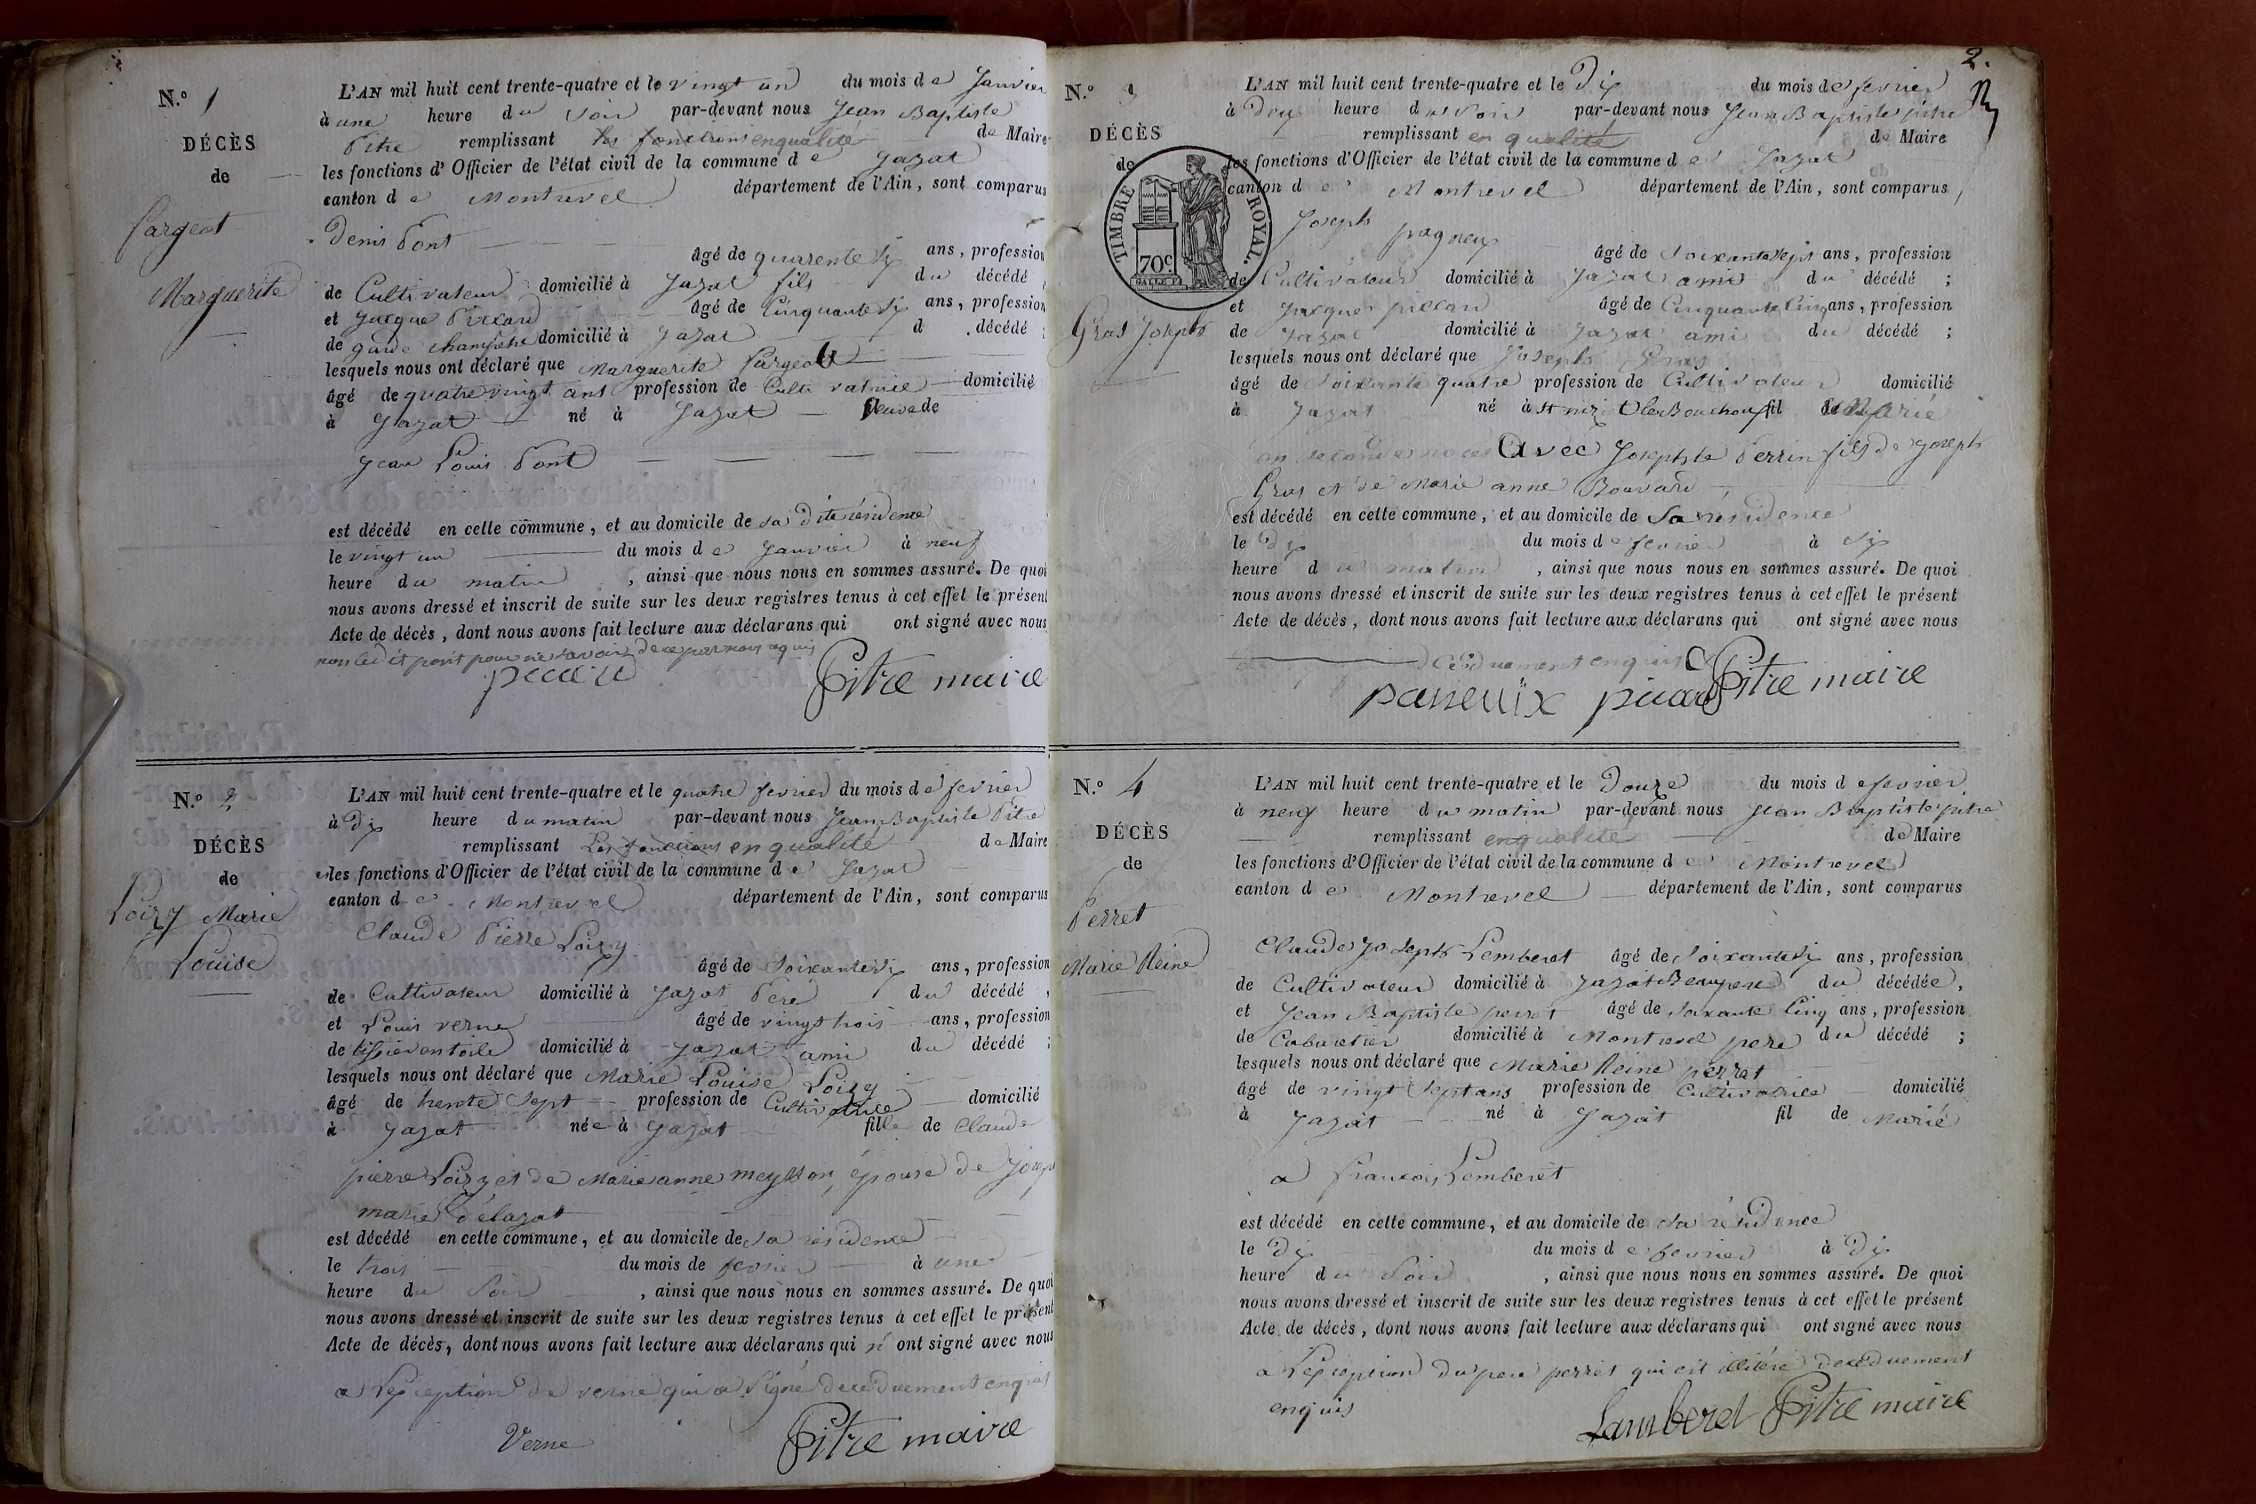 N.º 1
DÉCÈS
de
Pargeot
Marguerite
L'AN mil huit cent trente-quatre et le vingt un du mois de Janvier
à une heure du Soir par-devant nous Jean Baptiste
Pitre remplissant les fonctions en qualité de Maire
les fonctions d'Officier de l'état civil de la commune de Jayat
canton de Montrevel département de l'Ain, sont comparus
Denis Pont
âgé de quarente six ans, profession
de Cultivateur domicilié à Jayat fils du décédé
et Jacque Piccard âgé de Cinquante six ans, profession
de garde champetre domicilié à Jayat d décédé ;
lesquels nous ont déclaré que Marguerite Pargeot
âgé de quatre vingt ans profession de Culti vatrice domicilié
à Jayat né à Jayat veuve de
Jean Louis Pont
est décédé en celle commune, et au domicile de sa dite résidence
le vingt un du mois de Janvier à neuf
heure du matin , ainsi que nous nous en sommes assuré. De quoi
nous avons dressé et inscrit de suite sur les deux registres tenus à cet effet le présent
Acte de décès, dont nous avons fait lecture aux déclarans qui ont signé avec nous
non ledit pont pour ne savoir de ce par nous requis
picard Pitre maire
N.º 2
DÉCÈS
de
Loizy Marie
Louise
L'AN mil huit cent trente-quatre et le quatre fevrier du mois de fevrier
à dix heure du matin par-devant nous Jean Baptiste Pitre
remplissant Les fonctions en qualité de Maire
les fonctions d'Officier de l'état civil de la commune de Jayat
canton de Montrevel département de l'Ain, sont comparus
Claude Pierre Loizy
âgé de Soixante six ans, profession
de Cultivateur domicilié à Jayat Pere du décédé ,
et Louis verne âgé de vingt trois ans, profession
de tissier en toile domicilié à Jayat ami du décédé ;
lesquels nous ont déclaré que Marie Louise Loizy
âgé de trente sept profession de Cultivatrice domicilié
à Jayat née à Jayat fille de Claude
pierre Loizy et de Marie anne meysson, épouse de Josep
marie délayat
est décédé en cette commune, et au domicile de sa résidence
le trois du mois de fevrier à une
heure du Soir , ainsi que nous nous en sommes assuré. De quoi
nous avons dressé et inscrit de suite sur les deux registres tenus à cet effet le présent
Acte de décès, dont nous avons fait lecture aux déclarans qui n' ont signé avec nous
a L'éxception de verne qui a Signé de ce duement enquis
Verne Pitre maire
2.
N.º 3
DÉCÈS
de
TIMBRE ROYAL.
70c
Gras Joseph
L'AN mil huit cent trente-quatre et le Dix du mois de fevrier
à deux heure du Soir par-devant nous Jean Baptiste pitre
remplissant en qualité de Maire
les fonctions d'Officier de l'état civil de la commune de Jayat
canton de Montrevel département de l'Ain, sont comparus
Joseph pagneux
âgé de Soixante sept ans, profession
de Cultivateur domicilié à Jayat ami du décédé ;
et Jacques piccard âgé de Cinquante Cinq ans, profession
de Jayat domicilié à Jayat ami du décédé ;
lesquels nous ont déclaré que Joseph Gras
âgé de Soixante quatre profession de Cultivateur domicilié
à Jayat né à st nizi Le Bouchoux fil de Marié
en seconde noces avec Josephte Perrin fils de joseph
Gras et de Marie anne Bouvard
est décédé en cette commune, et au domicile de Sa résidence
le dix du mois de fevrier à six
heure du matin , ainsi que nous nous en sommes assuré. De quoi
nous avons dressé et inscrit de suite sur les deux registres tenus à cet effet le présent
Acte de décès, dont nous avons fait lecture aux déclarans qui ont signé avec nous
de ce duement enquis
paneuix picard Pitre maire
N.º 4
DÉCÈS
de
Perret
Marie Reine
L'AN mil huit cent trente-quatre et le Douze du mois de fevrier
à neuf heure du matin par-devant nous Jean Baptiste pitre
remplissant en qualité de Maire
les fonctions d'Officier de l'état civil de la commune de Montrevel
canton de Montrevel département de l'Ain, sont comparus
Claude Joseph Lemberet âgé de Soixante six ans, profession
de Cultivateur domicilié à Jayat Beaupere du décédée,
et Jean Baptiste perret âgé de Soixante Cinq ans, profession
de Cabaretier domicilié à Montrevel pere du décédé ;
lesquels nous ont déclaré que Marie Reine perret
âgé de vingt sept ans profession de Cultivatrice domicilié
à Jayat né à Jayat fil de Marié
a francois Lemberet
est décédé en cette commune, et au domicile de sa résidence
le dix du mois de fevrier à dix
heure du Soir , ainsi que nous nous en sommes assuré. De quoi
nous avons dressé et inscrit de suite sur les deux registres tenus à cet effet le présent
Acte de décès, dont nous avons fait lecture aux déclarans qui ont signé avec nous
a L'éxception du pere perret qui est illitéré de ce duement
enquis
Lamberet Pitre maire